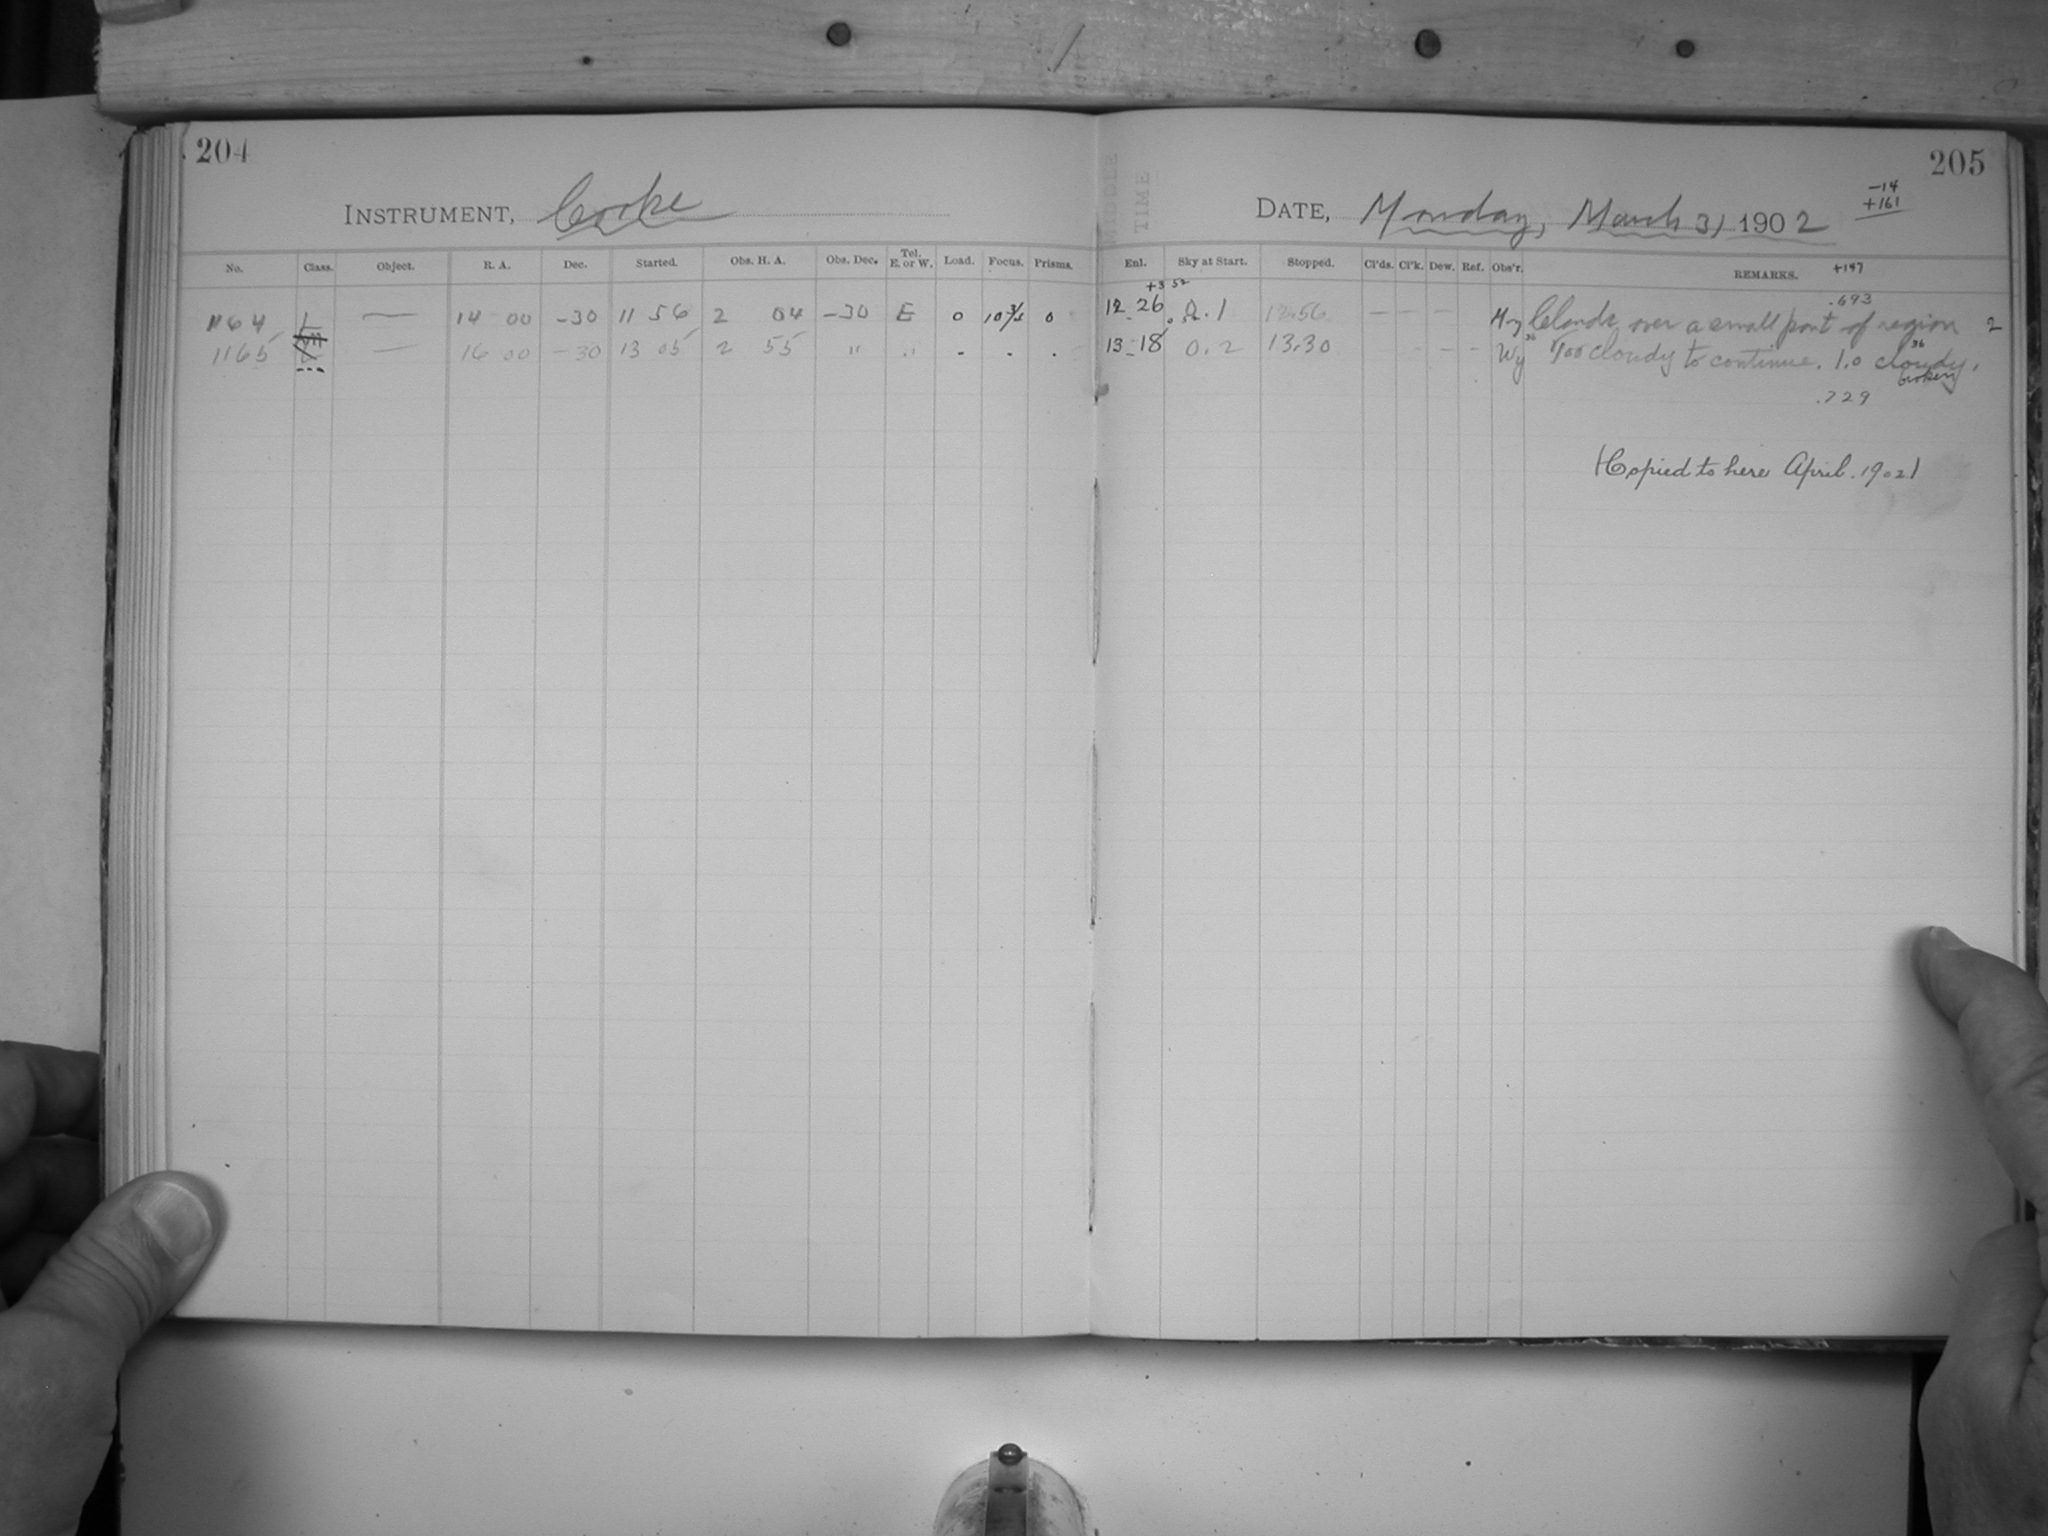 204
INSTRUMENT, Cooke
No. Class. Object. R. A. Dec. Started. Obs. H. A. Obs. Dec. Tel. E. or W. Load. Focus. Prisms.
1164 L — 14 00 -30 11 56 2 04 -30 E 0 0
1165 — 16 00 -30 13 05 2 55 " "
MIDDLE
TIME
205
DATE, Monday, March 31 1902
-14
+161
+147
Enl. Sky at Start. Stopped. Cl'ds. Cl'k. Dew. Ref. Obs'r. REMARKS.
+3 52
.693
12 26 0.1 12.56 — — — Hy Clouds over a small part of region 2
13 18 0.2 13.30 - - - Wy Too cloudy to continue. 1.0 cloudy,
broken
.729
(Copied to here April. 1902)